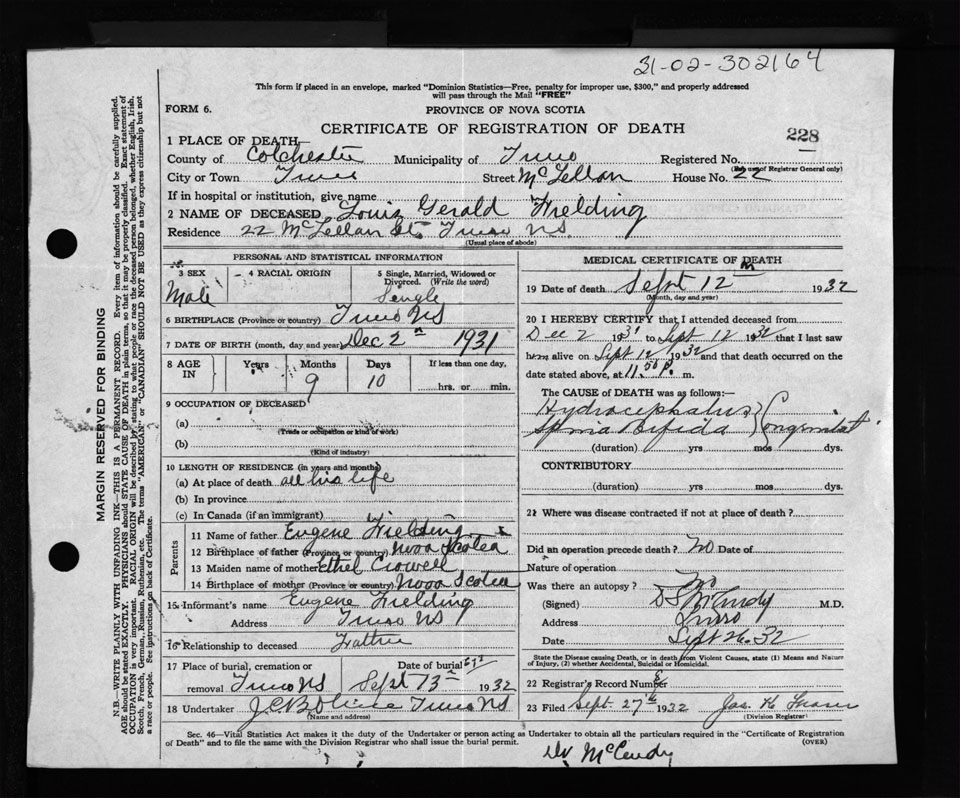 31-02-302164
This form if placed in an envelope, marked "Dominion Statistics—Free, penalty for improper use, $300," and properly addressed
will pass through the Mail "FREE"
FORM 6.
PROVINCE OF NOVA SCOTIA
CERTIFICATE OF REGISTRATION OF DEATH
228
1 PLACE OF DEATH
County of Colchester Municipality of Truro Registered No.
(For use of Registrar General only)
City or Town Truro Street McLellan House No. 22
If in hospital or institution, give name
2 NAME OF DECEASED Louis Gerald Fielding
Residence 22 McLellan St. Truro N.S.
(Usual place of abode)
PERSONAL AND STATISTICAL INFORMATION
3 SEX Male
4 RACIAL ORIGIN
5 Single, Married, Widowed or Divorced. (Write the word)
Sengle
6 BIRTHPLACE (Province or country) Truro N S
7 DATE OF BIRTH (month, day and year) Dec 2nd 1931
8 AGE IN Years Months Days If less than one day,
9 10 hrs. or min.
9 OCCUPATION OF DECEASED
(a)
(Trade or occupation or kind of work)
(b)
(Kind of industry)
10 LENGTH OF RESIDENCE (in years and months)
(a) At place of death all his life
(b) In province
(c) In Canada (if an immigrant)
Parents
11 Name of father Eugene Fielding
12 Birthplace of father (Province or country) Nova Scotia
13 Maiden name of mother Ethel Crowell
14 Birthplace of mother (Province or country) Nova Scotia
15 Informant's name Eugene Fielding
Address Truro N S
16 Relationship to deceased Father
17 Place of burial, cremation or removal Truro N S
Date of burial Sept 13th 1932
18 Undertaker Truro N S
(Name and address)
MEDICAL CERTIFICATE OF DEATH
19 Date of death Sept 12 1932
(Month, day and year)
20 I HEREBY CERTIFY that I attended deceased from
Dec 2 1931 to Sept 12 1932 that I last saw
him alive on Sept 12 1932 and that death occurred on the
date stated above, at 11.50 P. m.
The CAUSE OF DEATH was as follows:—
Hydrocephalus
Spinia Bifida } Congenital
(duration) yrs mos dys.
CONTRIBUTORY
(duration) yrs mos dys.
21 Where was disease contracted if not at place of death?
Did an operation precede death? No Date of
Nature of operation
Was there an autopsy? No
(Signed) D S McCurdy M.D.
Address Truro
Date Sept 26. 32
State the Disease causing Death, or in death from Violent Causes, state (1) Means and Nature
of Injury, (2) whether Accidental, Suicidal or Homicidal.
22 Registrar's Record Number
23 Filed Sept. 27th 1932 Jas. K Fraser
(Division Registrar)
Sec. 46—Vital Statistics Act makes it the duty of the Undertaker or person acting as Undertaker to obtain all the particulars required in the "Certificate of Registration
of Death" and to file the same with the Division Registrar who shall issue the burial permit.
(OVER)
Dr McCurdy
MARGIN RESERVED FOR BINDING
N.B.—WRITE PLAINLY WITH UNFADING INK—THIS IS A PERMANENT RECORD. Every item of information should be carefully supplied.
AGE should be stated EXACTLY. PHYSICIANS should STATE CAUSE OF DEATH in plain terms, so that it may be properly classified. Exact statement of
OCCUPATION is very important. RACIAL ORIGIN will be described by stating to what people or race the deceased person belonged, whether English, Irish,
Scotch, French, German, Russian, Ruthenian, etc. The terms "AMERICAN" or "CANADIAN" SHOULD NOT BE USED as they express citizenship but not
a race or people. See instructions on back of Certificate.